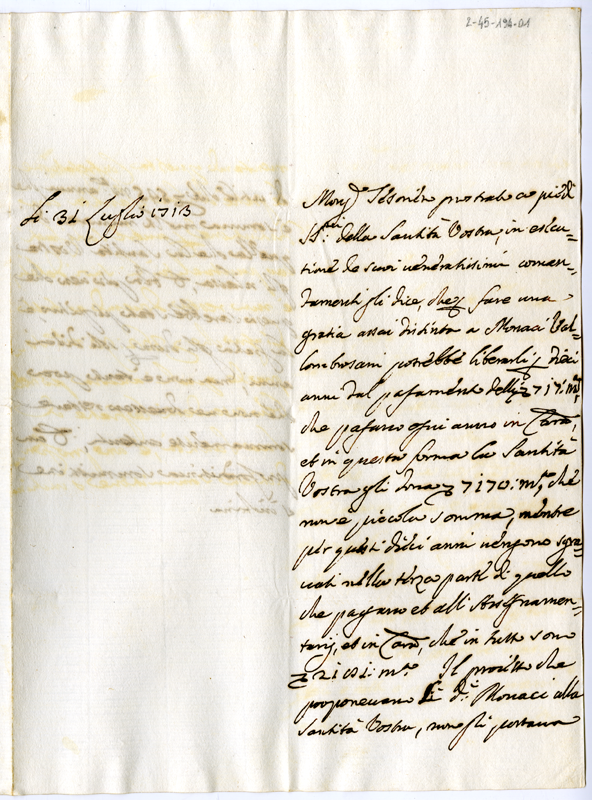 2-45-194-01
Li 31 Luglio 1713
Monsr Tesoriere prostrato a piedi
SSmi della Santità Vostra, in esecu-
tione de suoi veneratissimi coman-
damenti gli dice, che p fare una
gratia assai distinta a Monaci Val-
lombrosani potrebbe liberarli p dieci
anni dal pagamento delli 717: mta
che pagano ogni anno in Cam.a,
et in questa forma la Santità
Vostra gli dona 7170: mta, che
non è piccola somma, mentre
per questi dieci anni vengono sgra-
vati nella terza parte di quello
che pagano et alli Assegnamen-
tarij, et in Cam.a, che in tutto sono
2151: mta Il progetto che
proponevano li di Monaci alla
Santità Vostra, non gli portava